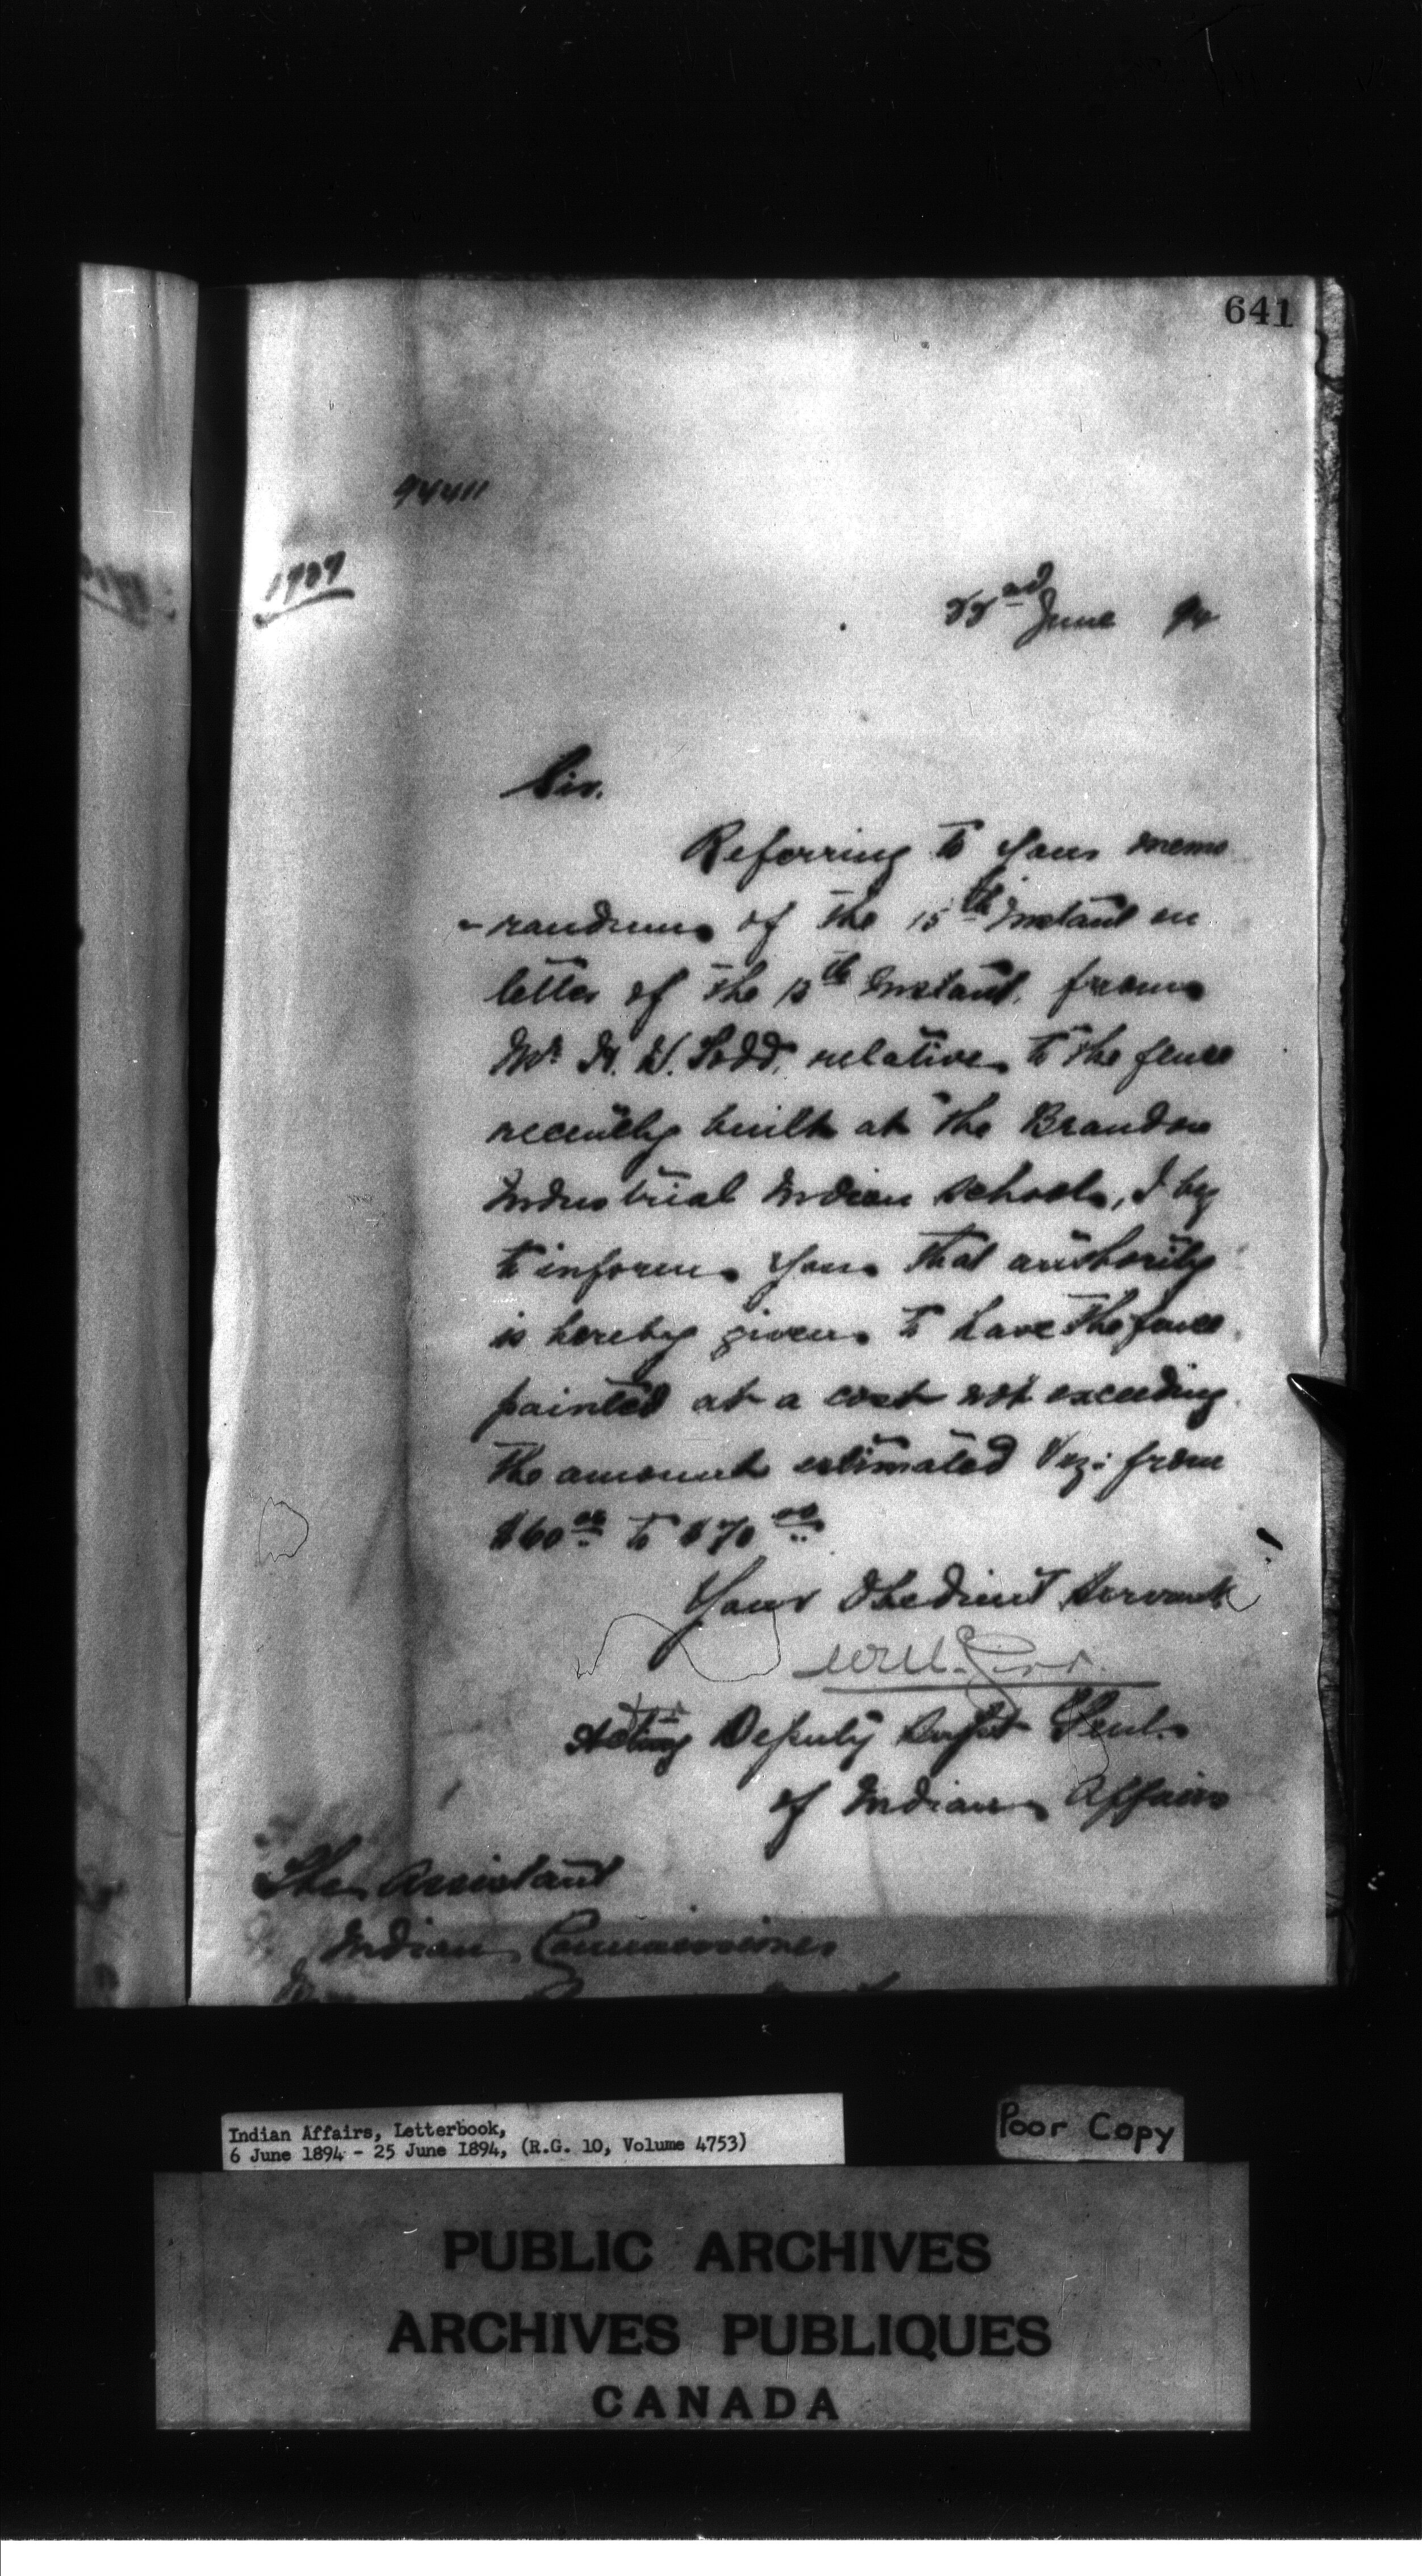 641
94411
1989
22nd June 94
Sir.
Referring to your memo
-randum of the 15th Instant on
letter of the 12th Instant, from
Mr. H. D. Todd, relative to the fence
recently built at the Brandon
Industrial Indian School, I beg
to inform you that authority
is hereby given to have the fence
painted at a cost not exceeding
the amount estimated Viz: from
$60.00 to $70.00
Your Obedient Servant
Acting Deputy Supt Genl.
of Indian Affairs
The Assistant
Indian Commissioner
Indian Affairs, Letterbook,
6 June 1894 - 25 June 1894, (R.G. 10, Volume 4753)
Poor Copy
PUBLIC ARCHIVES
ARCHIVES PUBLIQUES
CANADA